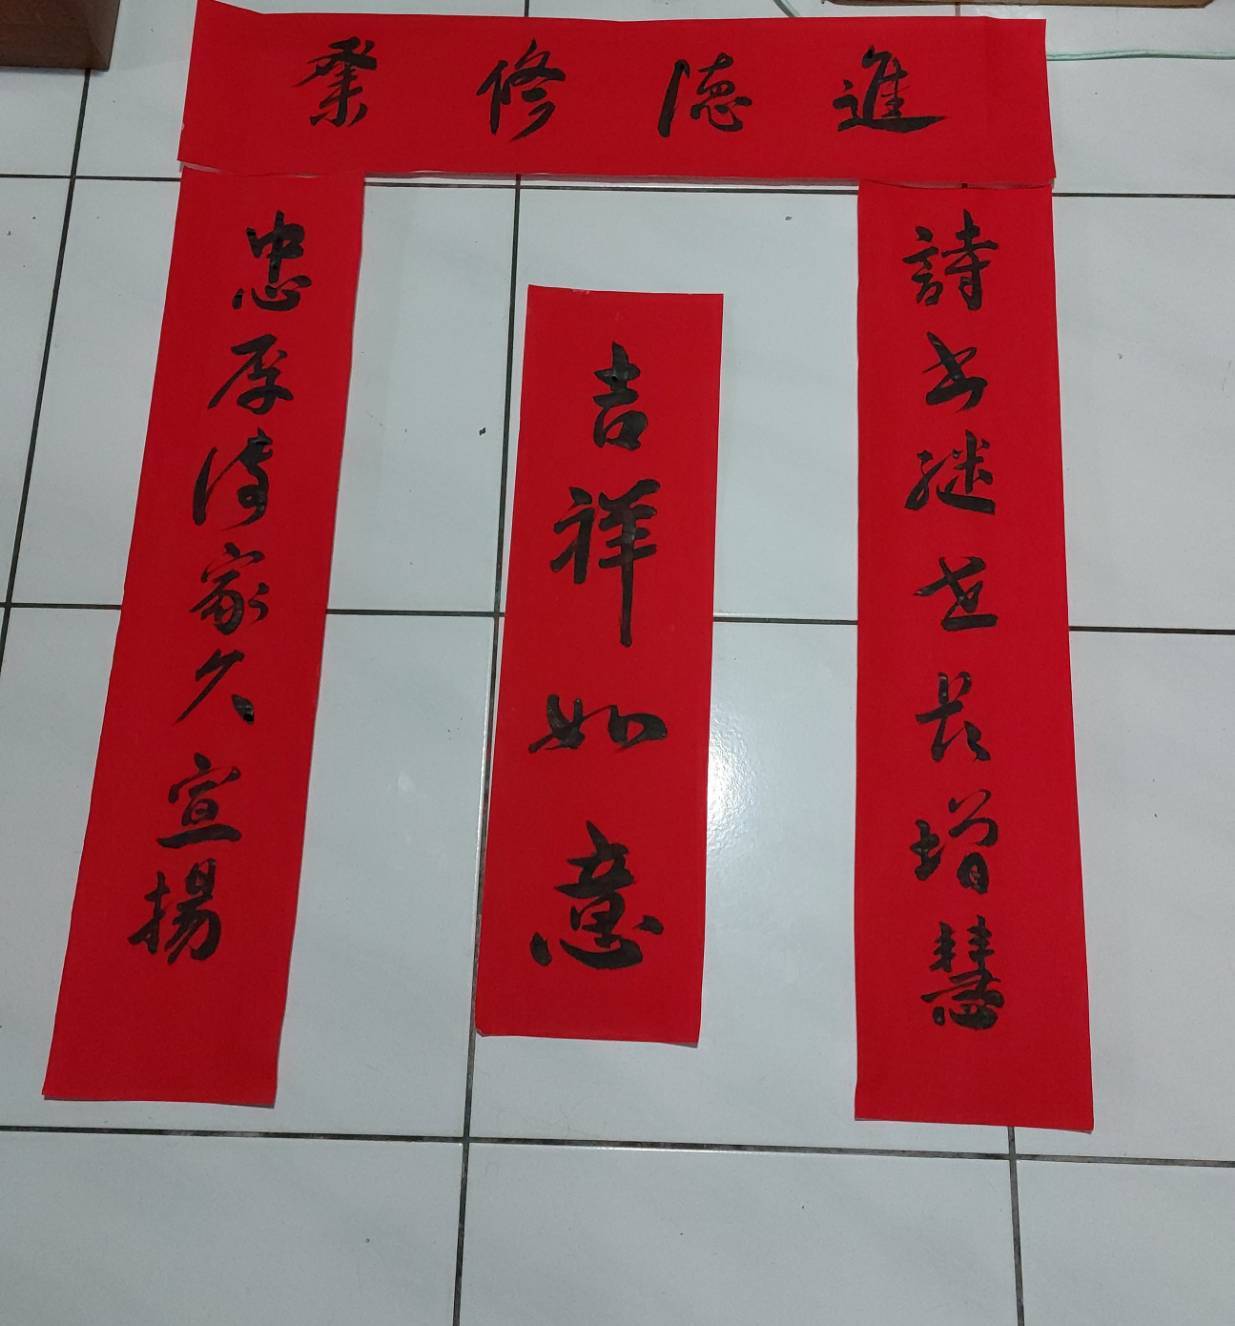 進德修業
詩書繼世長增慧
吉祥如意
忠厚傳家久宣揚